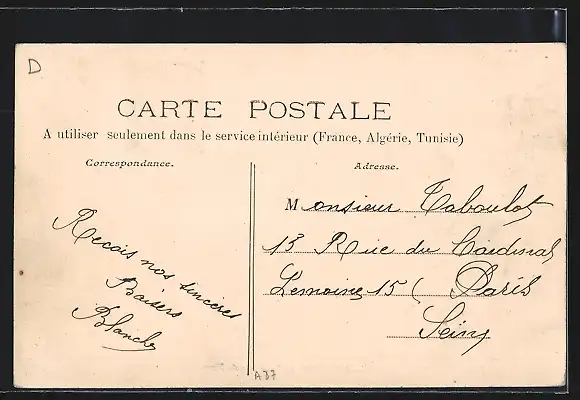 D
CARTE POSTALE
A utiliser seulement dans le service intérieur (France, Algérie, Tunisie)
Correspondance.
Adresse.
Recois nos sincères
Baisers
Blanche
Monsieur Taboulot
13 Rue du Cardinal
Lemoine 15 ( Paris
Seine
A37